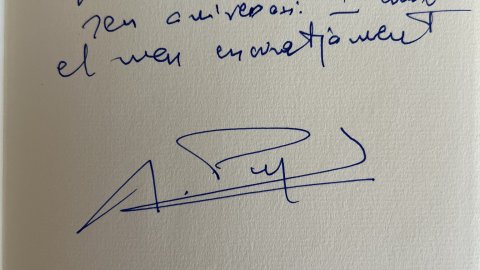 seu aniversari. I
el meu encoratjament
A. Puj